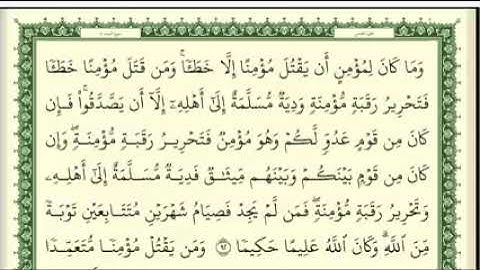 وَمَا كَانَ لِمُؤْمِنٍ أَن يَقْتُلَ مُؤْمِنًا إِلَّا خَطَـًٔا ۚ وَمَن قَتَلَ مُؤْمِنًا خَطَـًٔا
فَتَحْرِيرُ رَقَبَةٍ مُّؤْمِنَةٍ وَدِيَةٌ مُّسَلَّمَةٌ إِلَىٰٓ أَهْلِهِۦٓ إِلَّآ أَن يَصَّدَّقُوا۟ ۚ فَإِن
كَانَ مِن قَوْمٍ عَدُوٍّ لَّكُمْ وَهُوَ مُؤْمِنٌ فَتَحْرِيرُ رَقَبَةٍ مُّؤْمِنَةٍ ۖ وَإِن
كَانَ مِن قَوْمٍۭ بَيْنَكُمْ وَبَيْنَهُم مِّيثَـٰقٌ فَدِيَةٌ مُّسَلَّمَةٌ إِلَىٰٓ أَهْلِهِۦ
وَتَحْرِيرُ رَقَبَةٍ مُّؤْمِنَةٍ ۖ فَمَن لَّمْ يَجِدْ فَصِيَامُ شَهْرَيْنِ مُتَتَابِعَيْنِ تَوْبَةً
مِّنَ ٱللَّهِ ۗ وَكَانَ ٱللَّهُ عَلِيمًا حَكِيمًا ٩٢ وَمَن يَقْتُلْ مُؤْمِنًا مُّتَعَمِّدًا